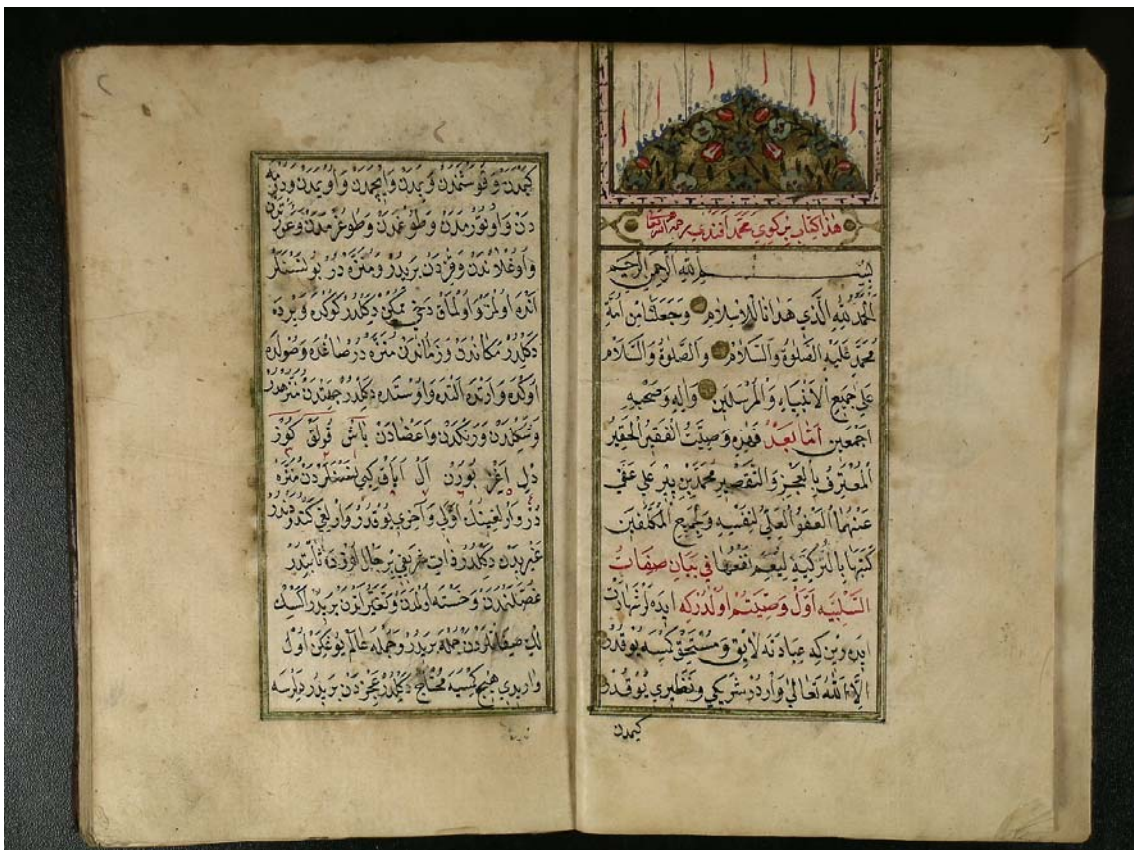 هذا كتاب بركوي محمد افندي رحمه الله تعالى
بسم الله الرحمن الرحيم
الحمد لله الذي هدانا للاسلام وجعلنا من امة
محمد عليه الصلوة والسلام والصلوة والسلام
على جميع الانبياء والمرسلين وآله وصحبه
اجمعين اما بعد فهذه وصيت الفقير الحقير
المعترف بالعجز والتقصير محمد بن پير علي عفى
عنهما العفو العلي لنفسه ولجميع المكلفين
كتبها بالتركية ليعم نفعها في بيان صفات
السلبيه اول وصيتم اولدركه ايده لر شهادت
ايده وبن كه عبادته لايق ومستحق كمسه يوقدر
الا الله تعالى واردر شريكي ونظيري يوقدر
كيمدن
كيمدن وقوشنمدن ويمدن وايچمدن واويمدن
دن واوتورمدن وطوغمدن وطوغرمدن
واوغلاندن وقزدن بريدر ومنزه در بونسنلر
آنده اولمق واولمامق دخي ممكن دكلدر كوكده ويرده
دكلدر مكاندن وزماندن منزه در صاغده وصولده
اوكده وارتده آلتده واوستده دكلدر جهتدن منزهدر
وشكلدن ورنكدن واعضادن باش قولق كوز
دل اغز بورن ال اياق كبي نسنلردن منزه
در وارلغينك اولي وآخري يوقدر وارلغي كندودندر
غيريدن دكلدر ذات شريفي بر حال اوزره ثابتدر
غصه لنمدن وخسته اولمدن وتغير لردن بريدر اكسك
لك صفاتلردن جمله بريدر وجمله عالم يوغكن اول
واريدي هيچ كمسيه محتاج دكلدر عجزدن بريدر ديلرسه